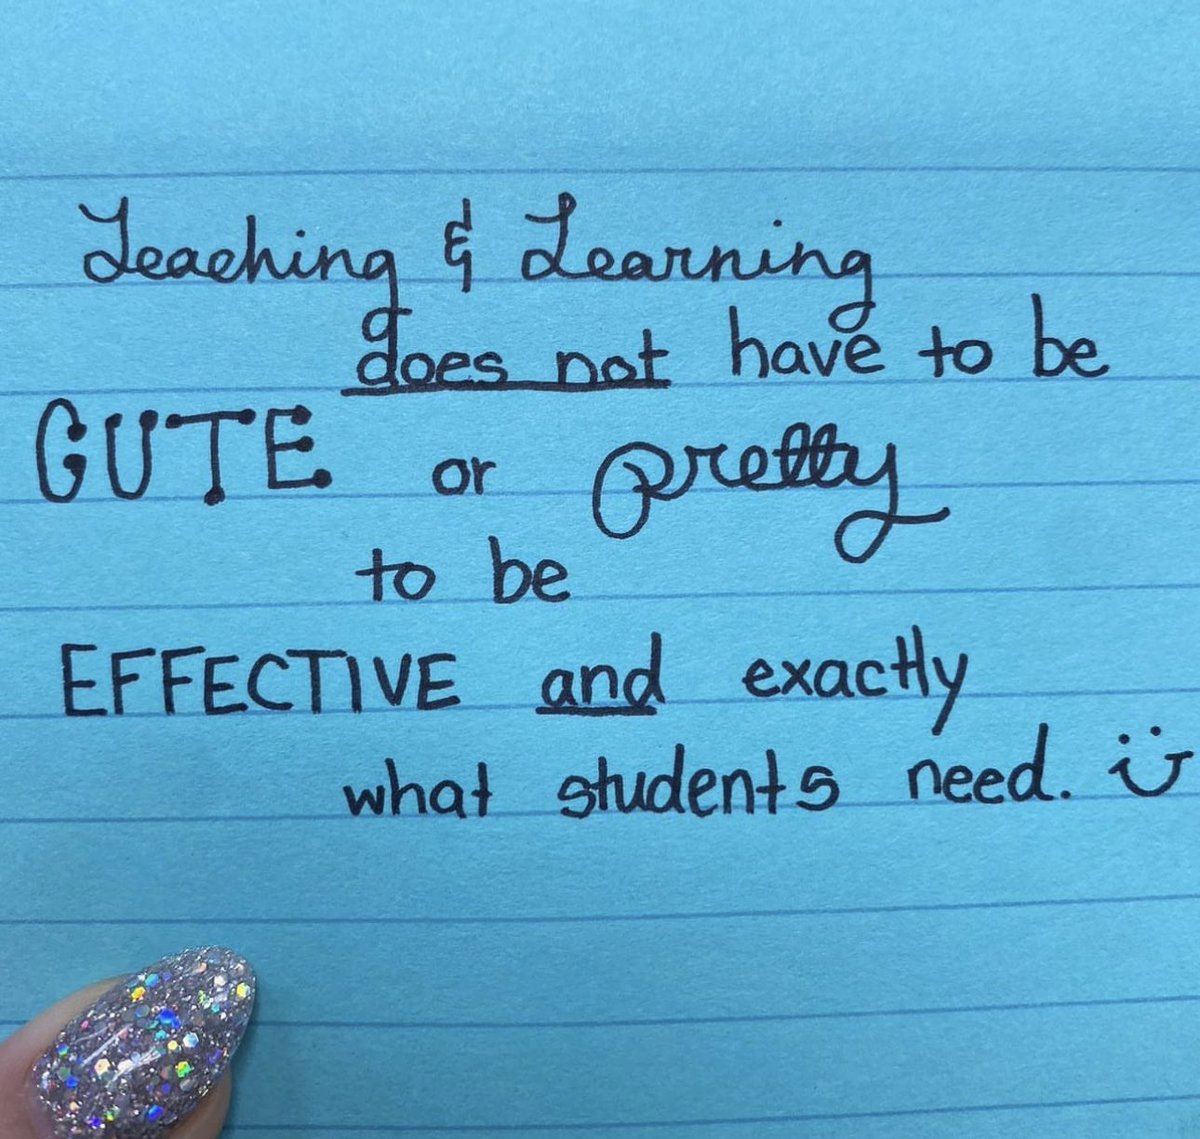 Teaching & Learning
does not have to be
CUTE or pretty
to be
EFFECTIVE and exactly
what students need. :)